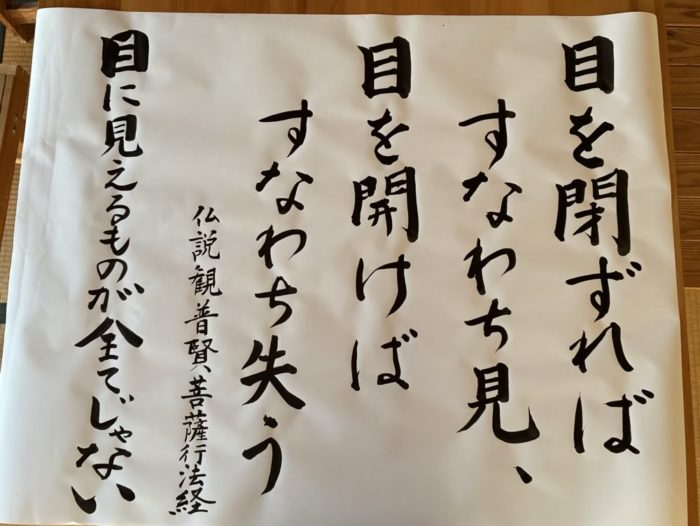 目を閉ずれば
すなわち見、
目を開けば
すなわち失う
仏説観普賢菩薩行法経
目に見えるものが全てじゃない